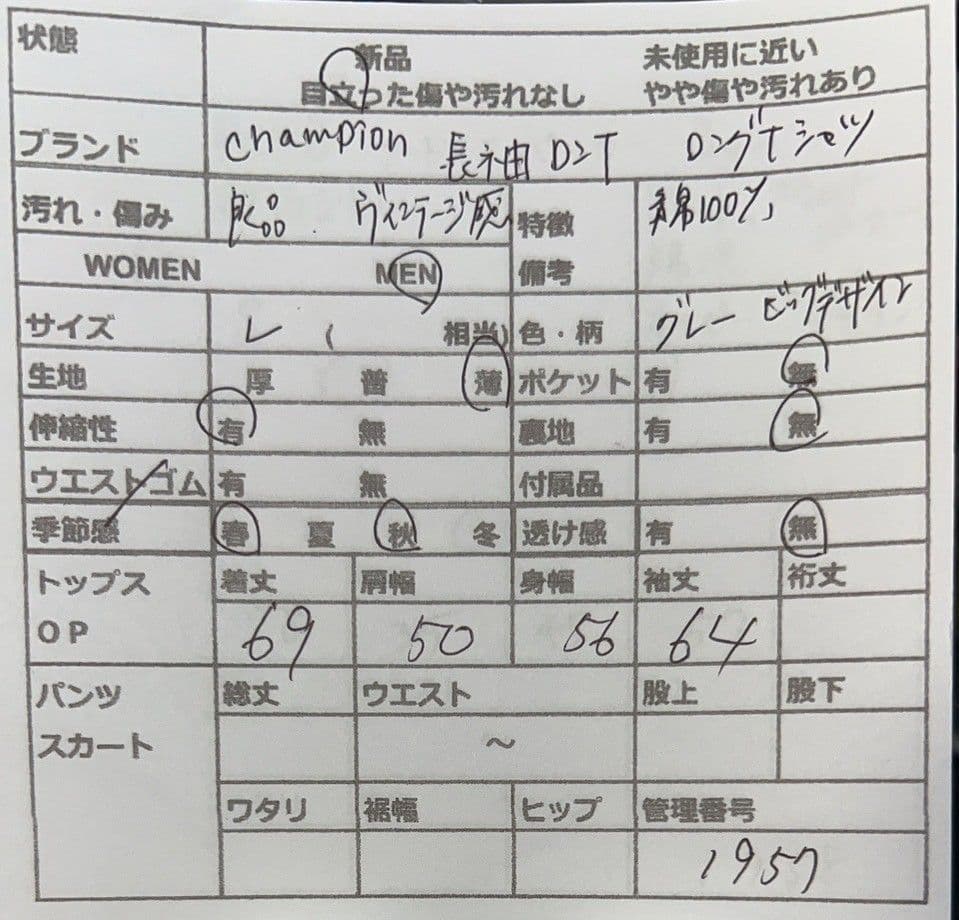 状態 新品 未使用に近い
目立った傷や汚れなし やや傷や汚れあり
ブランド champion 長袖 ロンT ロングTシャツ
汚れ・傷み 良品. ヴィンテージ感 特徴 綿100%
WOMEN MEN 備考
サイズ L ( 相当) 色・柄 グレー ビッグデザイン
生地 厚 普 薄 ポケット 有 無
伸縮性 有 無 裏地 有 無
ウエストゴム 有 無 付属品
季節感 春 夏 秋 冬 透け感 有 無
トップス 着丈 肩幅 身幅 袖丈 裄丈
OP 69 50 56 64
パンツ 総丈 ウエスト 股上 股下
スカート ～
ワタリ 裾幅 ヒップ 管理番号
1957